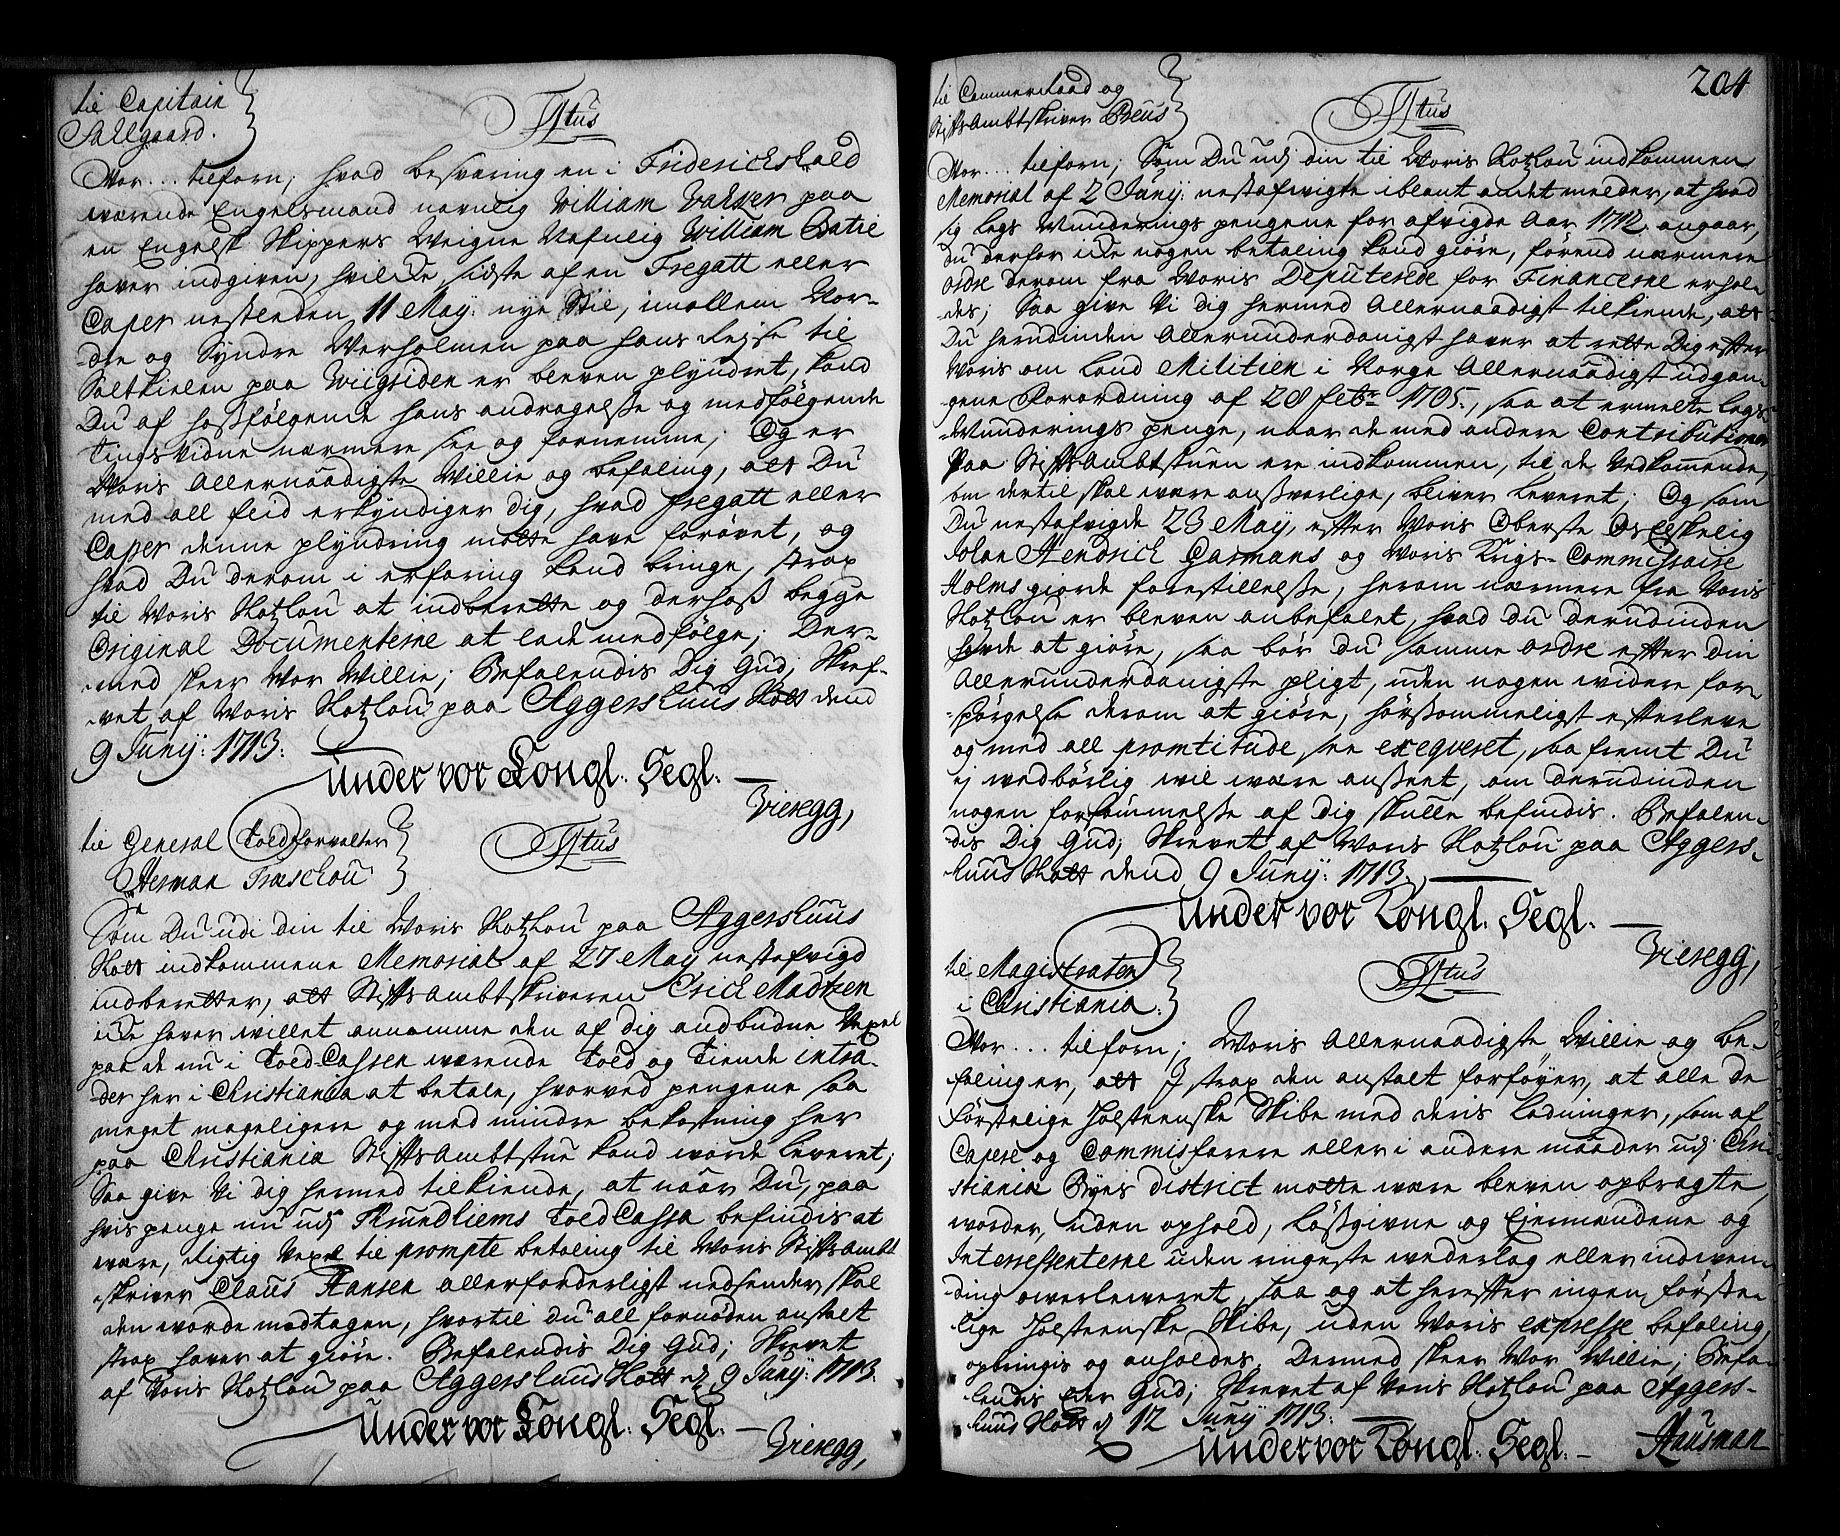 til Capitain
Sahlgaard.
Titus
Vor... tilforn; hvad besværing en i Friderichshald
værende Engelsmand navnlig William Valker paa
en Engelsk Skippers Weigne Nafnlig William Batie
hafver indgiven, hvilcke sidste af en Fregatt eller
Caper nestenden 11 May: nye Stil, imollem Nor-
-dre og Syndre Verholmen paa hans Rejse til
Saltkielen paa Wiigsiden er bleven plyndret, kand
Du af hossfølgende hans andragelse og medfølgende
Tings Vidne nærmere see og fornemme; Og er
Voris Allernaadigste Villie og befaling, att Du
med all flid erkyndiger dig, hvad fregatt eller
Caper denne plyndring motte have forøvet, og
hvad Du derom i erfaring kand bringe, strax
til Voris Slotzlou at indberette og derhoss begge
Original Documenterne at lade medfølge; Der-
-med skeer Vor Villie; Befalendis Dig Gud; Skref-
-vet af Voris Slotzlou paa Aggershuus Slott dend
9 Junij: 1713:
Under vor Kongl: Segl.
Vieregg,
til General Toldforvalter
Herman Træschou
Titus
Som Du udi din til Voris Slotzlou paa Aggershuus
Slott indkommene Memorial af 27 May nestafvigd
indberetter, att StiftsAmbtskriveren Erich Madtzen
icke hafver willet annamme den af dig andbudne Vexel
paa de nu i ToldCassen værende Told og Tiende intra-
-der her i Christiania at betale, hvorved pengene saa
meget mageligere og med mindre bekostning her
paa Christiania StiftsAmbtstue kand worde leveret;
Saa give Vi dig hermed tilkiende, at naar Du, paa
hvis penge nu udj Trundhiems ToldCassa befindis at
være, Rigtig Vexel til prompte betaling til Voris StiftsAmbt
-skriver Claus Hansen allerforderligst nedsender, skal
den worde modtagen, hvortil Du all fornøden anstalt
strax hafver at giøre. Befalendis Dig Gud; Skrevet
af Voris Slotzlou paa Aggershuus Slott d 9 Junij: 1713.
Under vor Kongl: Segl.
Vieregg,
204
til Commerceraad og
StiftsAmbtskriver Beus
Titus
Vor... tilforn; Som Du udj din til Voris Slotzlou indkommen
Memorial af 2 Junij: nestafvigte iblant andet melder, at hvad
sig Legs Munderings pengene for afvigde Aar 1712. angaar,
Du derfor icke nogen betaling kand giøre, førend nærmere
ordre derom fra Voris Deputerede for Financerne erhol-
-des; Saa give Vi dig hermed Allernaadigst tilkiende, att
Du herudinden Allerunderdanigst hafver at rette Dig efter
Voris om Land Militien i Norge Allernaadigst udgan-
gene Forordning af 28 febr: 1705., saa at ermelte Legs-
Munderings penge, naar de med andre Contributioner
Paa StiftsAmbtstuen ere indkommen, til de Vedkommende,
som dertil skal være ansvarlige, bliver leveret; Og som
Du nestafvigde 23 May, efter Voris Oberste Os Elskelig
Johan Hendrich Garmans og Voris Krigs-Commissaire
Holms giorde forestillelse, herom nærmere fra Voris
Slotzlou er bleven anbefalet, hvad Du derudinden
hafde at giøre, saa bør du samme ordre efter din
Allerunderdanigste pligt, uden nogen widere for-
-spørgelse derom at giøre, hørsommeligst efterleve
og med all promtitude, see exeqveret, saa fremt Du
ej wedbørlig wil være anseet, om derudinden
nogen forsømmelse af dig skulle befindis. Befalen-
dis Dig Gud; Skrevet af Voris Slotzlou paa Aggers-
huus Slott dend 9 Junij: 1713.
Under vor Kongl: Segl.
Vieregg,
til Magistraten
i Christiania.
Titus
Vor... tilforn; Voris Allernaadigste Willie og be-
falinger, att I strax den anstalt forføyer, at alle de
Førstelige Holsteenske Skibe med deris ladninger, som af
Capere og Commisfarere eller i andere maader udj Chri-
stiania Byes district motte være bleven opbragte
worder, uden ophold, løssgivne og Ejermendene og
Interressenterne uden ringeste wederlag eller indwen-
-ding owerleweret, saa og at herefter ingen førstte-
lige Holsteenske Skibe, uden Voris expresse befaling,
opbringis og anholdes. Dermed skeer Vor Willie; Befa-
lendis Eder Gud; Skrevet af Voris Slotzlou paa Aggers-
huus Slott d 12 Junij 1713.
Under vor Kongl: Segl.
Hausman